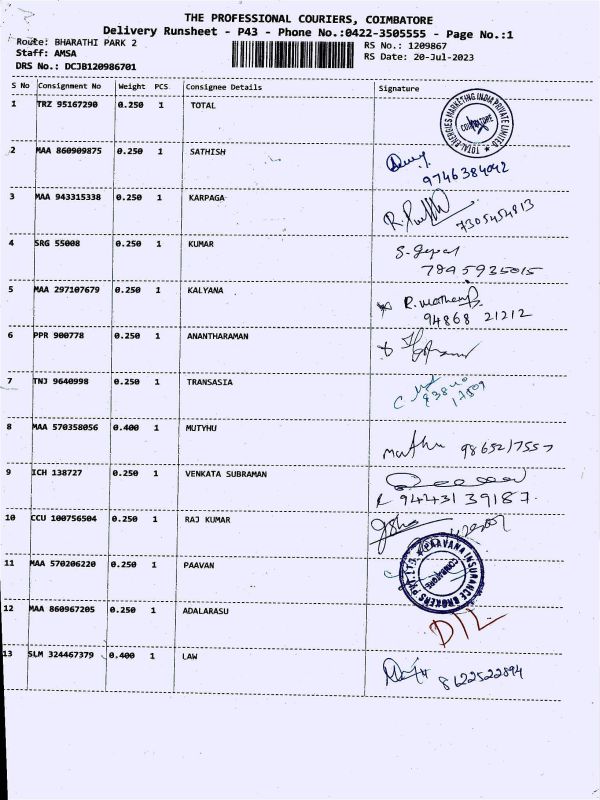 THE PROFESSIONAL COURIERS, COIMBATORE
Delivery Runsheet - P43 - Phone No.:0422-3505555 - Page No.:1
Route: BHARATHI PARK 2
RS No.: 1209867
Staff: AMSA
RS Date: 20-Jul-2023
DRS No.: DCJB120986701
S No Consignment No Weight PCS Consignee Details Signature
1 TRZ 95167290 0.250 1 TOTAL
TOTAL ENERGIES MARKETING INDIA PRIVATE LIMITED
COIMBATORE
2 MAA 860909875 0.250 1 SATHISH
9746384042
3 MAA 943315338 0.250 1 KARPAGA
7305454813
4 SRG 55008 0.250 1 KUMAR
S. Gopal
7845935015
5 MAA 297107679 0.250 1 KALYANA
94868 21212
6 PPR 900778 0.250 1 ANANTHARAMAN
7 TNJ 9640998 0.250 1 TRANSASIA
8 MAA 570358056 0.400 1 MUTYHU
Muthu 9865217557
9 ICH 138727 0.250 1 VENKATA SUBRAMAN
94431 39187
10 CCU 100756504 0.250 1 RAJ KUMAR
11 MAA 570206220 0.250 1 PAAVAN
PAAVANA INSURANCE BROKERS PVT. LTD.
COIMBATORE
12 MAA 860967205 0.250 1 ADALARASU
DTL
13 SLM 324467379 0.400 1 LAW
8122522894